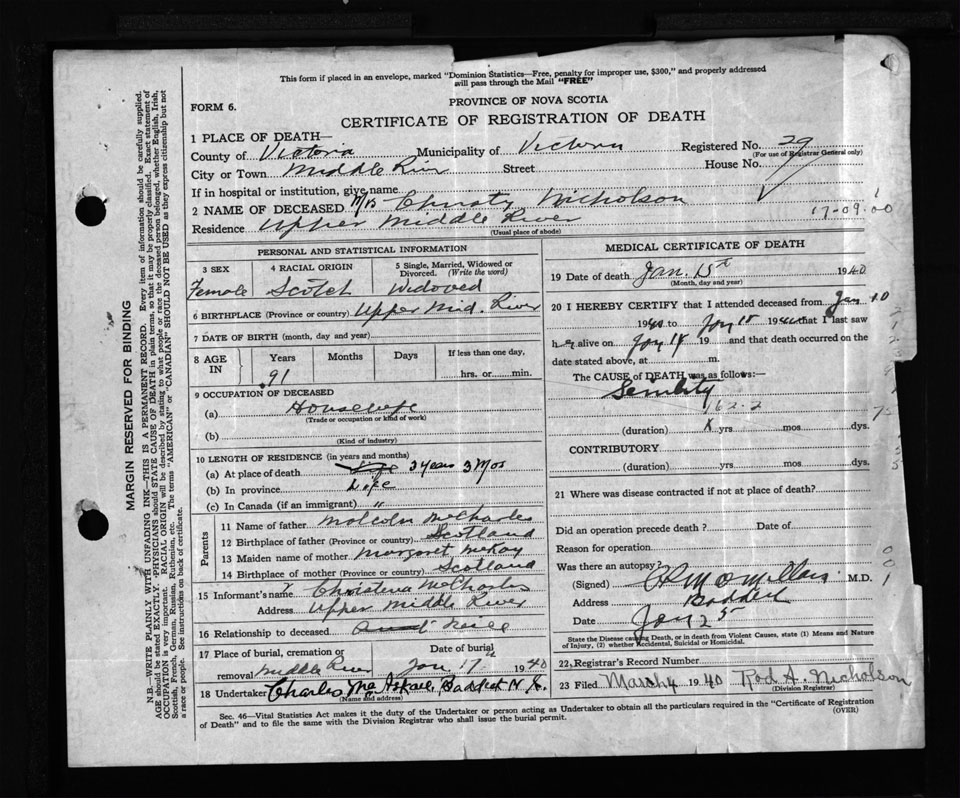 This form if placed in an envelope, marked "Dominion Statistics—Free, penalty for improper use, $300," and properly addressed
will pass through the Mail "FREE"
FORM 6.
PROVINCE OF NOVA SCOTIA
CERTIFICATE OF REGISTRATION OF DEATH
1 PLACE OF DEATH—
County of Victoria Municipality of Victoria Registered No. 29
(For use of Registrar General only)
City or Town Middle River Street House No.
If in hospital or institution, give name
2 NAME OF DECEASED Mrs Christy Nicholson
17-09-00
Residence Upper Middle River
(Usual place of abode)
PERSONAL AND STATISTICAL INFORMATION
3 SEX 4 RACIAL ORIGIN 5 Single, Married, Widowed or
Divorced. (Write the word)
Female Scotch Widoved
6 BIRTHPLACE (Province or country) Upper Mid. River
7 DATE OF BIRTH (month, day and year)
8 AGE IN Years Months Days If less than one day,
hrs. or min.
91
9 OCCUPATION OF DECEASED
(a) Housewife
(Trade or occupation or kind of work)
(b)
(Kind of industry)
10 LENGTH OF RESIDENCE (in years and months)
(a) At place of death 3 years 3 Mos
(b) In province Life
(c) In Canada (if an immigrant) "
Parents
11 Name of father Malcolm McCharles
12 Birthplace of father (Province or country) Scotland
13 Maiden name of mother Margaret McKay
14 Birthplace of mother (Province or country) Scotland
15 Informant's name Christena McCharles
Address Upper Middle River
16 Relationship to deceased
17 Place of burial, cremation or Date of burial
removal Middle River Jan 17 1940
18 Undertaker Charles MacAskill Baddeck N.S.
(Name and address)
MEDICAL CERTIFICATE OF DEATH
19 Date of death Jan. 15 1940
(Month, day and year)
20 I HEREBY CERTIFY that I attended deceased from Jan 10
1940 to Jan 15 1940 that I last saw
her alive on Jan 15 19 and that death occurred on the
date stated above, at m.
The CAUSE OF DEATH was as follows:—
Senility
162-2
(duration) X yrs mos dys.
CONTRIBUTORY
(duration) yrs mos dys.
21 Where was disease contracted if not at place of death?
Did an operation precede death? Date of
Reason for operation
Was there an autopsy?
(Signed) M.D.
Address Baddeck
Date Jan 25
State the Disease causing Death, or in death from Violent Causes, state (1) Means and Nature
of Injury, (2) whether Accidental, Suicidal or Homicidal.
22 Registrar's Record Number
23 Filed March 4 1940 Rod A. Nicholson
(Division Registrar)
Sec. 46—Vital Statistics Act makes it the duty of the Undertaker or person acting as Undertaker to obtain all the particulars required in the "Certificate of Registration
of Death" and to file the same with the Division Registrar who shall issue the burial permit.
(OVER)
MARGIN RESERVED FOR BINDING
N.B.—WRITE PLAINLY WITH UNFADING INK—THIS IS A PERMANENT RECORD. Every item of information should be carefully supplied.
AGE should be stated EXACTLY. PHYSICIANS should STATE CAUSE OF DEATH in plain terms, so that it may be properly classified. Exact statement of
OCCUPATION is very important. RACIAL ORIGIN will be described by stating to what people or race the deceased person belonged, whether English, Irish,
Scottish, French, German, Russian, Ruthenian, etc. The terms "AMERICAN" or "CANADIAN" SHOULD NOT BE USED as they express citizenship but not
a race or people. See instructions on back of certificate.